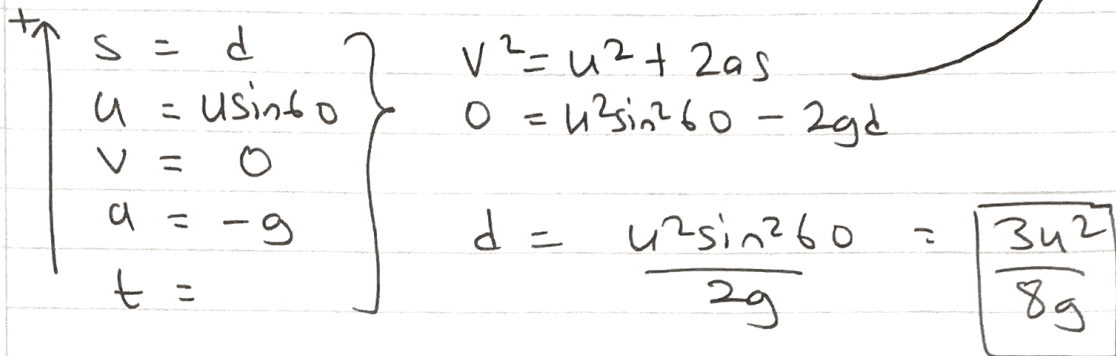 +
s = d
u = usin60
v = 0
a = -g
t =
v² = u² + 2as
0 = u²sin²60 - 2gd
d = u²sin²60 / 2g = 3u² / 8g